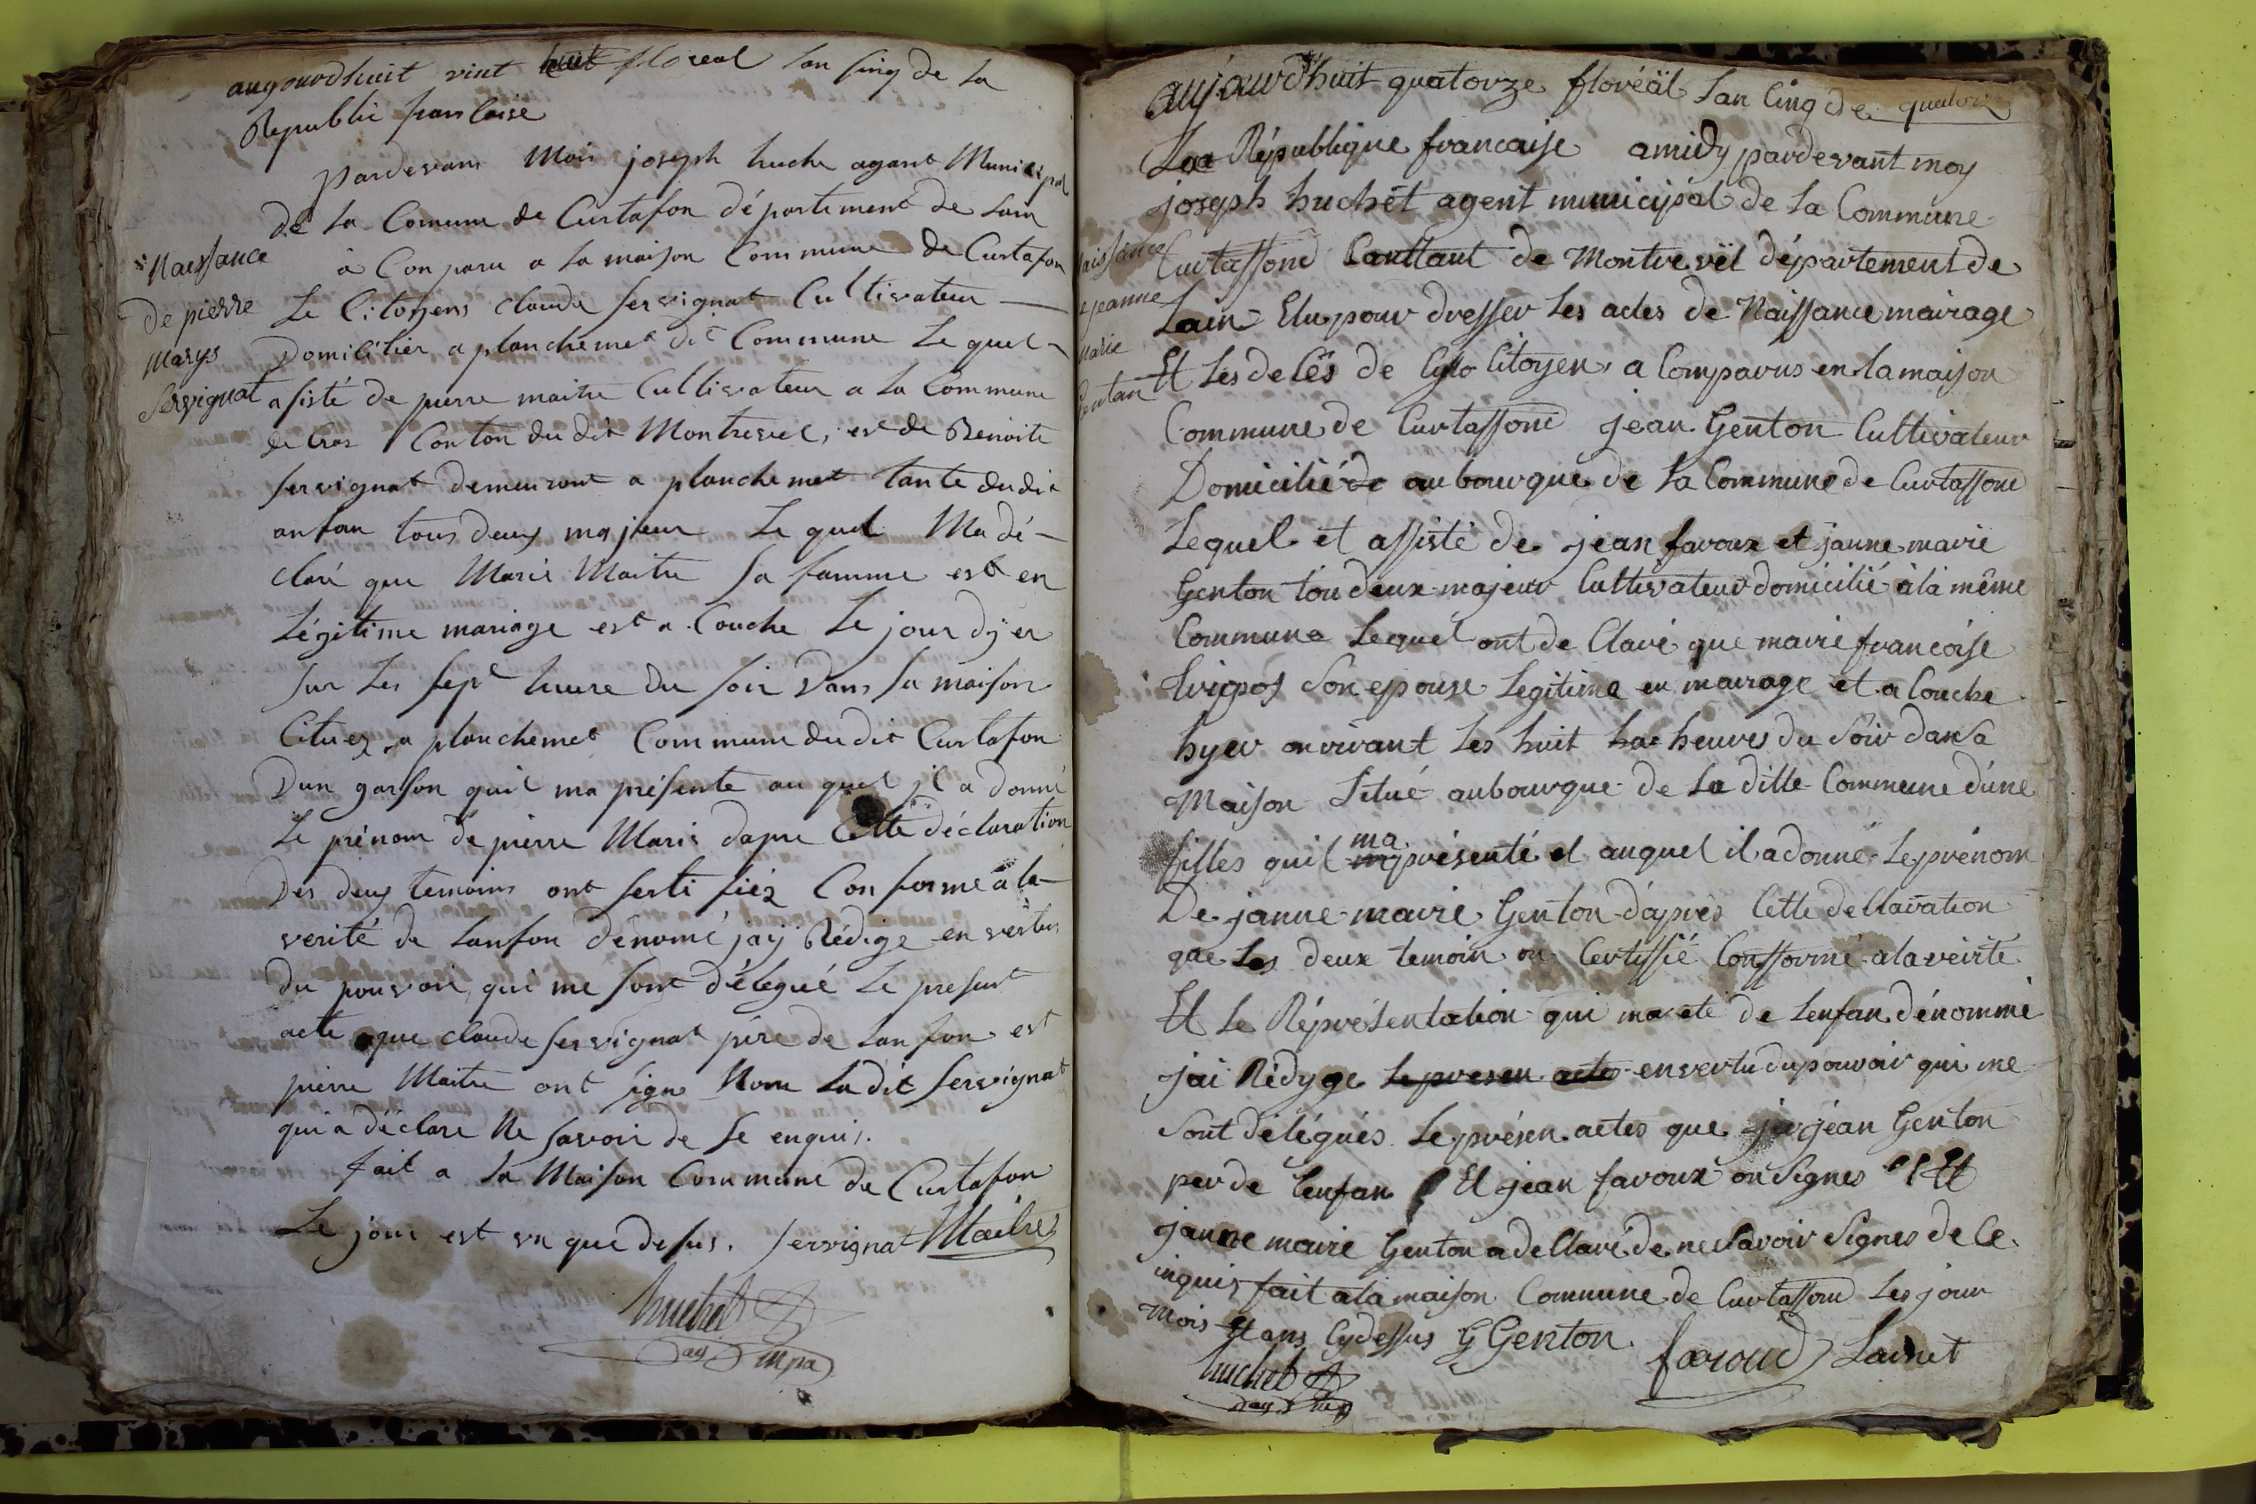 augourdhuit vint huit floreal lan sinq de la
Republic franssaise
pardevans Mois joseph huche agant Municipal
de la Comune de Curtafon département de Lain
à Con paru a la maison Commune de Curtafon
Naissance
de pierre
Marys
Servignat
Le Citoyens claude servignat Cultivateur
Domicilier a planchemet dt Commune Le quel
asisté de pierre maitre Cultivateur a la Commune
de Cras Conton du dit Montrevel, est de Benoite
servignat demeuront a planchemet tante dudit
anfan tous deux majeur Le quel Ma dé-
claré que Marie Maitre sa famme est en
Légitime mariage est a Couche Le jour dÿer
sur Les sept heure du soir dans sa maison
Cituez a planchemet Commune dudit Curtafon
Dun garson quil ma présente au quel jl a donné
Le prénom de pierre Maris dapre Cette déclaration
Des deux temoins ont serti fiéz Conforme a la
verité de Lanfan dénomé jaÿ Rédige en vertus
du pouvoir qui me sont délegué Le present
acte que claude servignat pére de Lanfon est
pierre Maitre ont signe Nom La dit servignat
qui a déclare Ne savoir de se enquis.
fait a La Maison Commune de Curtafon
Le jour est en que desus. servignat Maitre
huchet
ag mpal
aujaurdhuit quatorze floréal Lan Cinq de quatorz
La République francaise amidy pardevant moy
joseph huchet agent municipal de la Commune
Naissance
de jeanne
Marie
Gentan
Curtaffond Canttant de Montrevël département de
Lain Elu pour dresser Les actes de Naissance mairage
Et Les de Cés de Citoyen, a Comparus en la maison
Commune de Curtaffond jean Genton Cultivateur
Domicilié de au bourque de la Commune de Curtaffond
Lequel et assisté de jean favoux et janne marie
Genton tou deux majeur Cultivateur domicilié à la même
Commune Lequel ont de Claré que marie francoise
son epouse Legitime en mairage et a Couche
hyer onvivant Les huit ha heures du Soir dansa
Maison Situé au bourque de la ditte Commune dune
filles quil ma présenté et auquel il a donné Le prénom
De janne marie Genton dapres Cette dellaration
que Les deux temoin on Certiffié Confforme a la veirté
Et Le Réprésentation qui ma eté de Lenfan dénommé
jai Rédyge Le presen actes en vertu du pouvoir qui me
sont délégués Le présen actes que je jean Genton
per de Lenfan Et jean favoux on Signes Et
janne maire Genton a dellaré de ne Savoir Signes de Ce
inquis fait a la maison Commune de Curtaffond Les jour
Mois Et ans Cydessus G Genton
favoud Lainet
huchet
ag mp